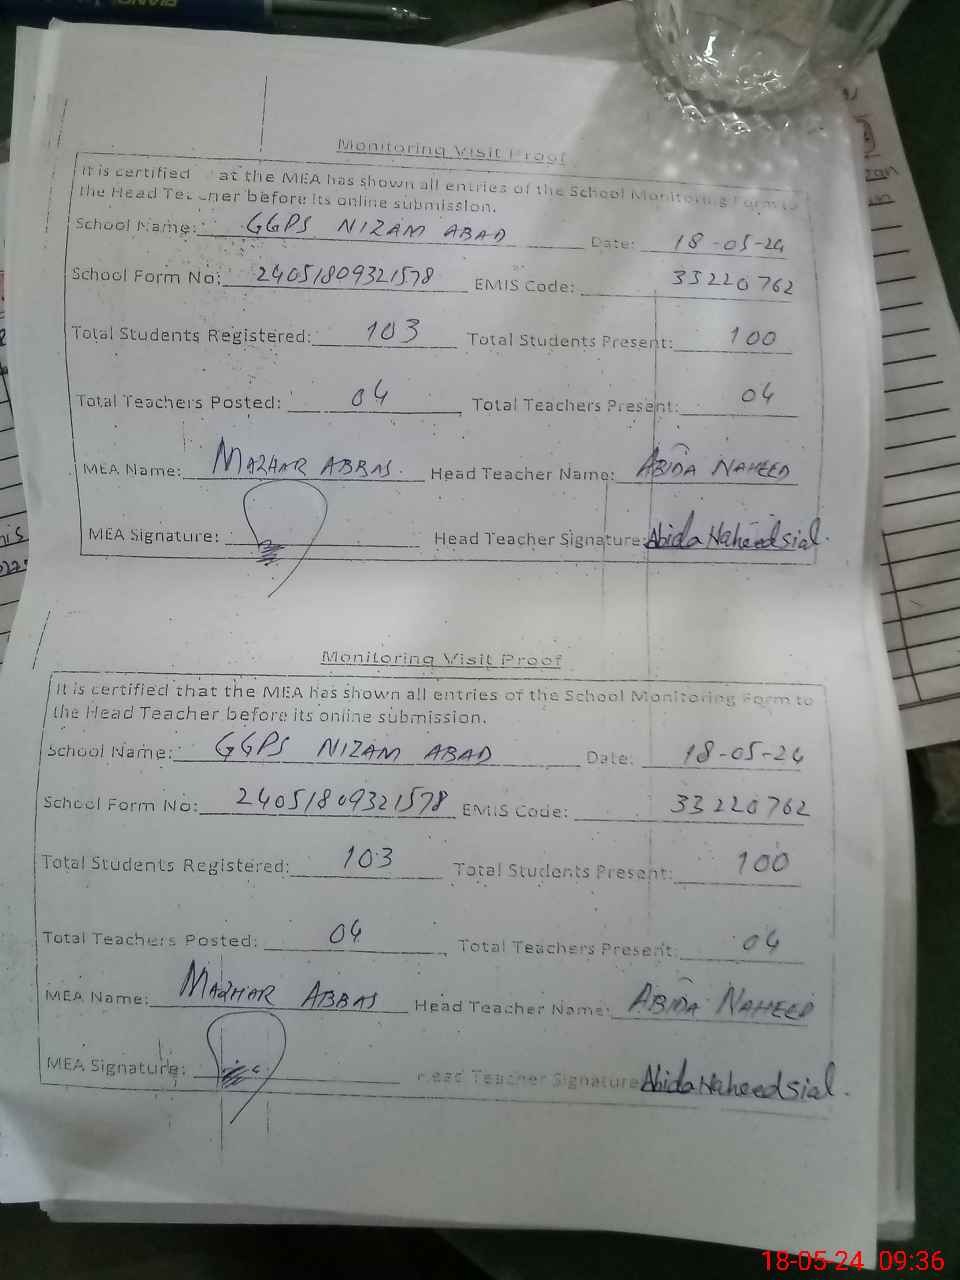 Monitoring Visit Proof
It is certified at the MEA has shown all entries of the School Monitoring Form to
the Head Teacher before its online submission.
School Name: GGPS NIZAM ABAD Date: 18-05-24
School Form No: 24051809321578 EMIS Code: 33220762
Total Students Registered: 103 Total Students Present: 100
Total Teachers Posted: 04 Total Teachers Present: 04
MEA Name: MAZHAR ABBAS. Head Teacher Name: ABIDA NAHEED
MEA Signature: Head Teacher Signature: Abida Naheed sial.
Monitoring Visit Proof
It is certified that the MEA has shown all entries of the School Monitoring Form to
the Head Teacher before its online submission.
School Name: GGPS NIZAM ABAD Date: 18-05-24
School Form No: 24051809321578 EMIS Code: 33220762
Total Students Registered: 103 Total Students Present: 100
Total Teachers Posted: 04 Total Teachers Present: 04
MEA Name: MAZHAR ABBAS Head Teacher Name: ABIDA NAHEED
MEA Signature: Head Teacher Signature Abida Naheed sial.
18-05-24 09:36